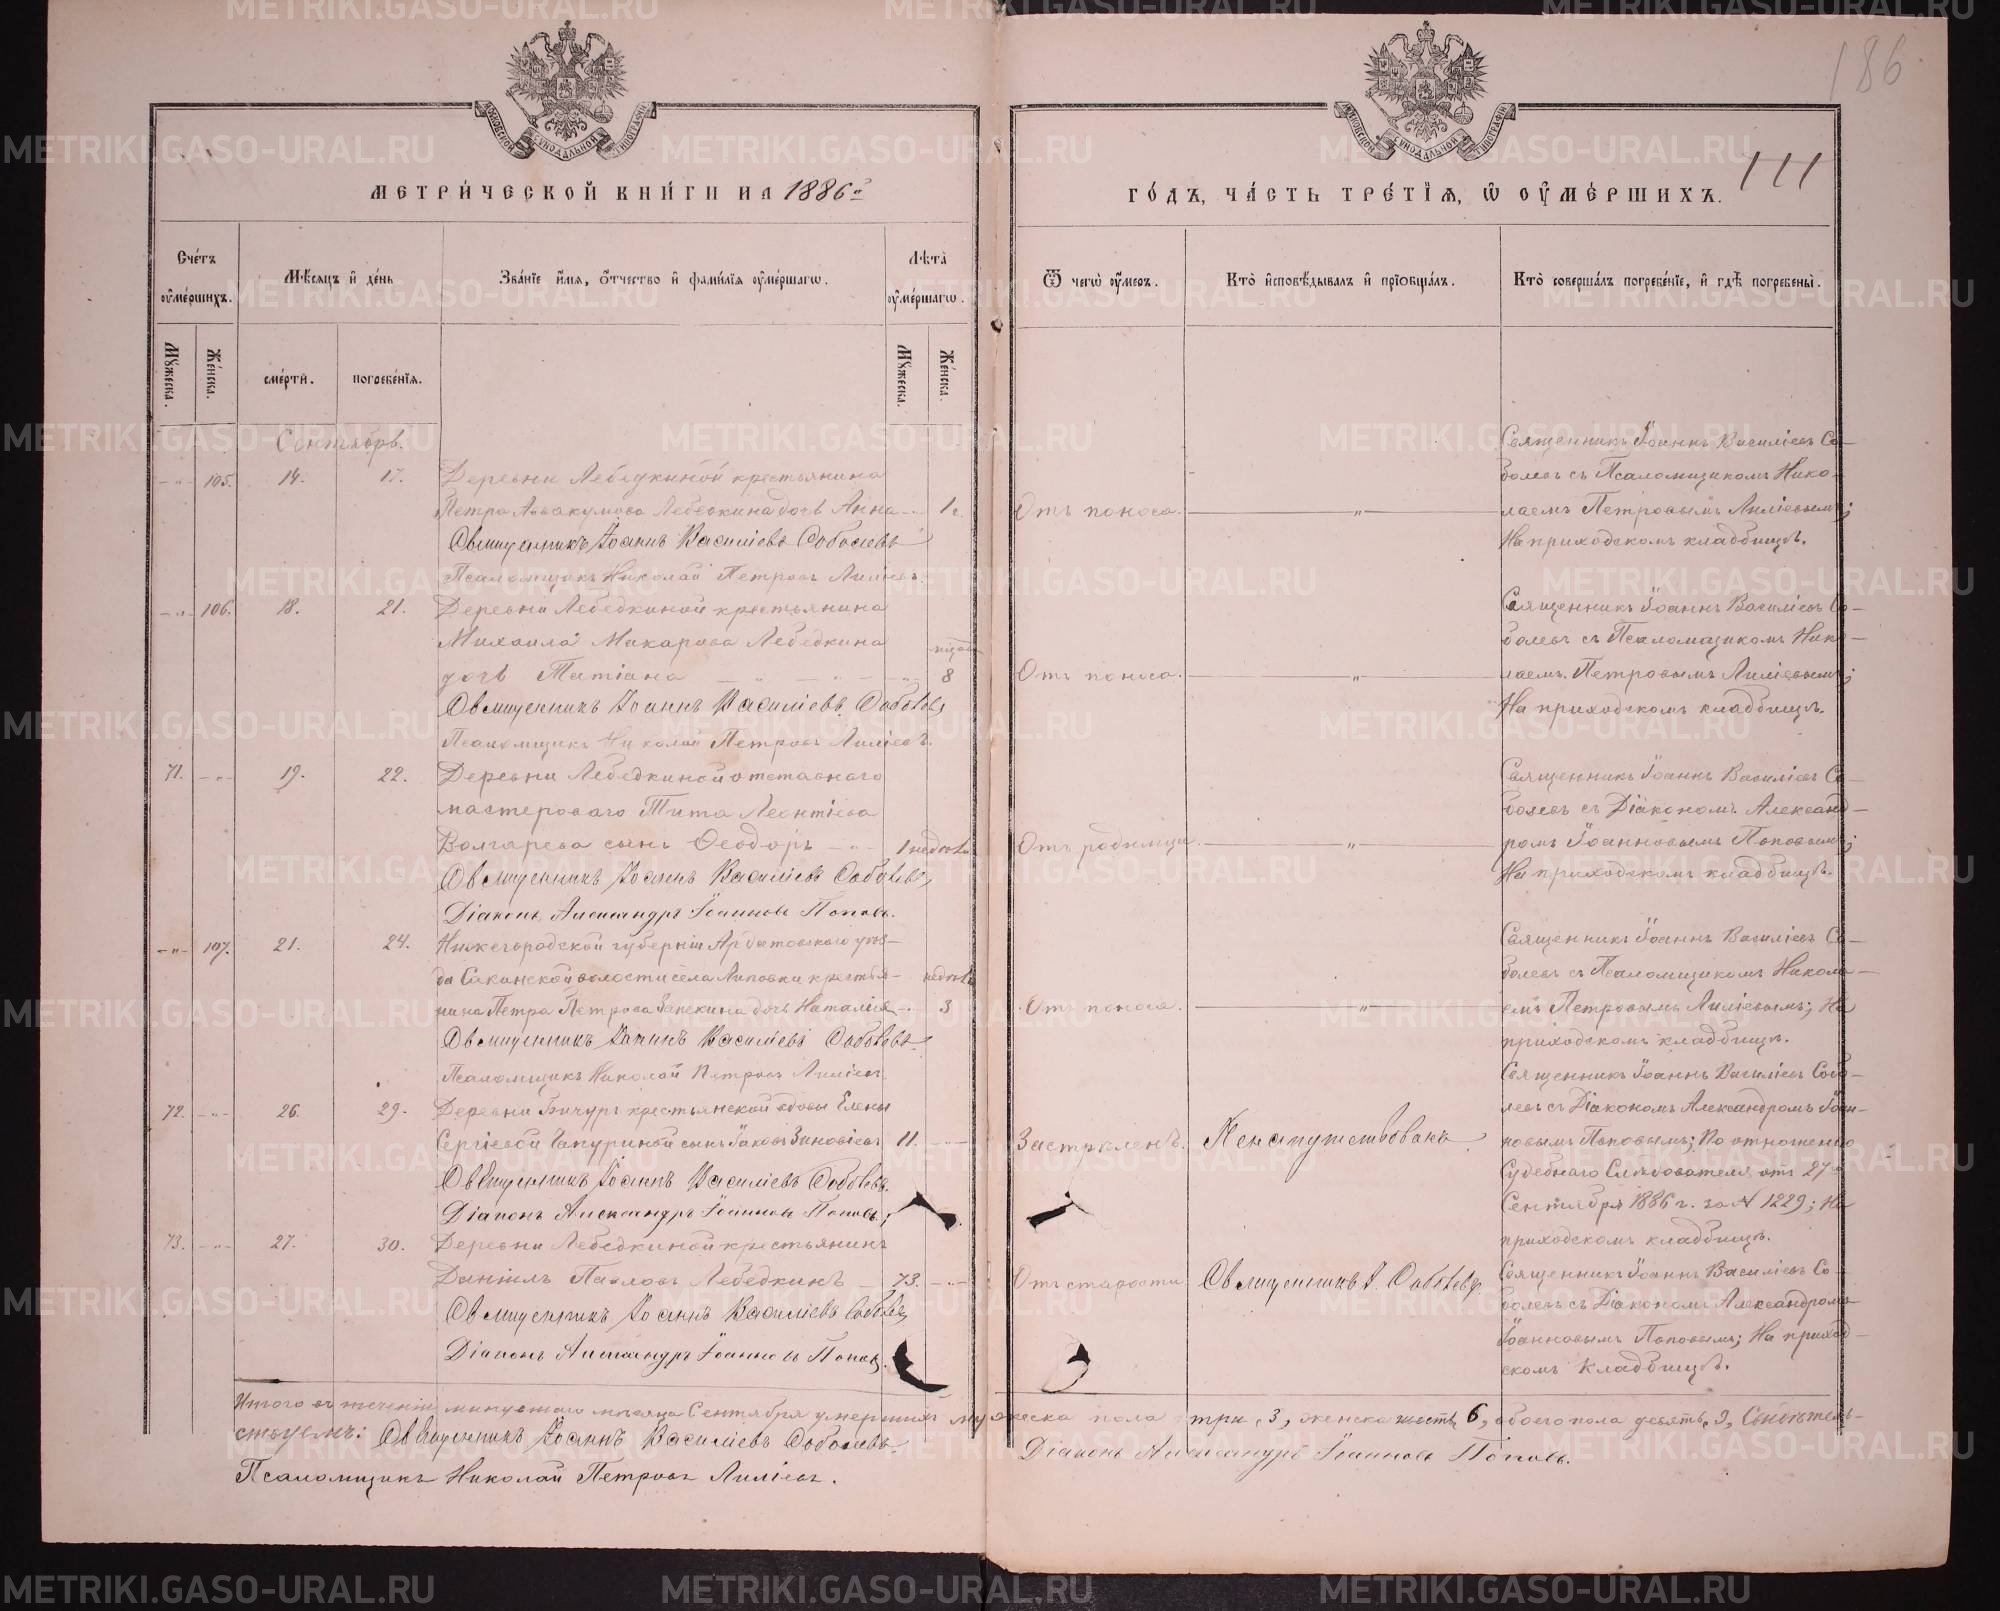 186
111
МЕТРИЧЕСКОЙ КНИГИ НА 1886й
ГОДЪ, ЧАСТЬ ТРЕТІЯ, Ѿ ОУМЕРШИХЪ.
Счетъ оумершихъ.
Мѣсяцъ и день
Званіе имя, отчество и фамилія оумершагѡ.
Лѣта оумершагѡ.
Ѿ чегѡ оумеръ.
Кто исповѣдывалъ и пріобщалъ.
Кто совершалъ погребеніе, и гдѣ погребены.
Мужеска.
Женска.
смерти.
погребенія.
Мужеска.
Женска.
Сентябрь.
105. 14. 17. Деревни Лебедкиной крестьянина
Петра Аввакумова Лебедкина дочь Анна 1 г.
Отъ поноса.
Священникъ Іоаннъ Василіевъ Соболевъ
Псаломщикъ Николай Петровъ Лиліевъ.
Священникъ Іоаннъ Василіевъ Со-
болевъ съ Псаломщикомъ Нико-
лаемъ Петровымъ Лиліевымъ;
На приходскомъ кладбищѣ.
106. 18. 21. Деревни Лебедкиной крестьянина
Михаила Макарова Лебедкина
дочь Татіана 8
Отъ поноса.
Священникъ Іоаннъ Василіевъ Соболевъ
Псаломщикъ Николай Петровъ Лиліевъ.
Священникъ Іоаннъ Василіевъ Со-
болевъ съ Псаломщикомъ Нико-
лаемъ Петровымъ Лиліевымъ;
На приходскомъ кладбищѣ.
71. 19. 22. Деревни Лебедкиной отставнаго
мастероваго Тита Леонтіева
Волгарева сынъ Ѳеодоръ 1 недѣль
Отъ родимца.
Священникъ Іоаннъ Василіевъ Соболевъ
Діаконъ Александръ Іоанновъ Поповъ.
Священникъ Іоаннъ Василіевъ Со-
болевъ съ Діакономъ Александ-
ромъ Іоанновымъ Поповымъ;
На приходскомъ кладбищѣ.
107. 21. 24. Нижегородской губерніи Ардатовскаго уѣз-
да Саканской волости села Липовки крестья-
нина Петра Петрова дочь Наталія
недѣль 3
Отъ поноса.
Священникъ Іоаннъ Василіевъ Соболевъ
Псаломщикъ Николай Петровъ Лиліевъ.
Священникъ Іоаннъ Василіевъ Со-
болевъ съ Псаломщикомъ Никола-
емъ Петровымъ Лиліевымъ; На
приходскомъ кладбищѣ.
72. 26. 29. Деревни Бичуръ крестьянской вдовы Елены
Сергіевой сынъ Іаковъ Зиновіевъ 11.
Застрѣленъ. Не напутствованъ
Священникъ Іоаннъ Василіевъ Соболевъ.
Діаконъ Александръ Іоанновъ Поповъ.
Священникъ Іоаннъ Василіевъ Собо-
левъ съ Діакономъ Александромъ Іоан-
новымъ Поповымъ; По отношенію
Судебнаго Слѣдователя отъ 27
Сентября 1886 г. за № 1229; На
приходскомъ кладбищѣ.
73. 27. 30. Деревни Лебедкиной крестьянинъ
Даніилъ Павловъ Лебедкинъ 73.
Отъ старости Священникъ І. Соболевъ.
Священникъ Іоаннъ Василіевъ Соболевъ
Діаконъ Александръ Іоанновъ Поповъ.
Священникъ Іоаннъ Василіевъ Со-
болевъ съ Діакономъ Александромъ
Іоанновымъ Поповымъ; На приход-
скомъ кладбищѣ.
Итого въ теченіи минувшаго мѣсяца Сентября умершихъ мужеска пола три, 3, женска шесть 6, обоего пола девять, 9, Свидѣтель-
ствуемъ: Священникъ Іоаннъ Василіевъ Соболевъ.
Діаконъ Александръ Іоанновъ Поповъ.
Псаломщикъ Николай Петровъ Лиліевъ.
METRIKI.GASO-URAL.RU